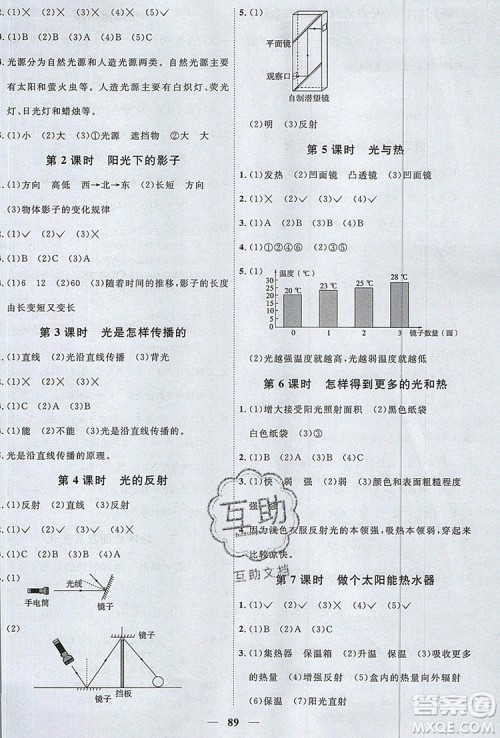 (1)✓ (2)✓ (3)× (4)× (5)✓
(1)B (2)A (3)A (4)C
光源分为自然光源和人造光源两类。自然光源主要
有太阳和萤火虫等。人造光源主要有白炽灯、荧光
灯、日光灯和蜡烛等。
(1)小 大 (2)大 小 (3)①光源 遮挡物 ②大
第 2 课时 阳光下的影子
(1)方向 高度 西→北→东 (2)长短 方向
(3)物体影子的变化规律
(1)✓ (2)✓ (3)✓
(1)B (2)C (3)A
(1)6 12 (2)60 (3)随着时间的推移,影子的长度
由长变短又变长
第 3 课时 光是怎样传播的
(1)直线 (2)光沿直线传播 (3)背光
(1)× (2)× (3)× (4)✓
(1)B (2)A (3)B
(1)能 (2)不能 (3)光是沿直线传播的
光是沿直线传播的原理。
第 4 课时 光的反射
(1)反射 (2)反射 (3)直线
(1)× (2)✓ (3)✓ (4)✓
(1)A (2)B
(1)
光线
手电筒
镜子
(2)
镜子
镜子
挡板
5. (1)
平面镜
观察口
自制潜望镜
(2)明 (3)反射
第 5 课时 光与热
1. (1)发热 (2)凹面镜 凸透镜 (3)凹面镜
2. (1)× (2)✓ (3)✓ (4)✓
3. (1)B (2)A (3)C (4)A
4. (1)①②④⑥ (2)③⑤
5. (1)
温度(℃)
30
25
20
15
10
5
0
20 ℃
23 ℃
25 ℃
28 ℃
0 1 2 3 镜子数量(面)
(2)光越强温度就越高,光越弱温度就越低
第 6 课时 怎样得到更多的光和热
1. (1)增大接受阳光照射面积 (2)黑色纸袋
白色纸袋 (3)③
2. (1)✓ (2)× (3)✓
3. (1)快 弱 强 (2)弱 强 (3)颜色和表面粗糙程度
4. 因为浅色衣服反射光的本领强,吸热本领弱,穿起来
比较凉快。
第 7 课时 做个太阳能热水器
1. (1)✓ (2)✓ (3)× (4)✓
2. (1)A (2)A (3)C (4)B
3. (1)集热器 保温箱 (2)保温箱 (3)升高 (4)吸收更多
的热量 (5)减少盒内的热量向外传递
(6)保温 (7)阳光直射
89
互助
互助文档
答案圈
MXQE.COM